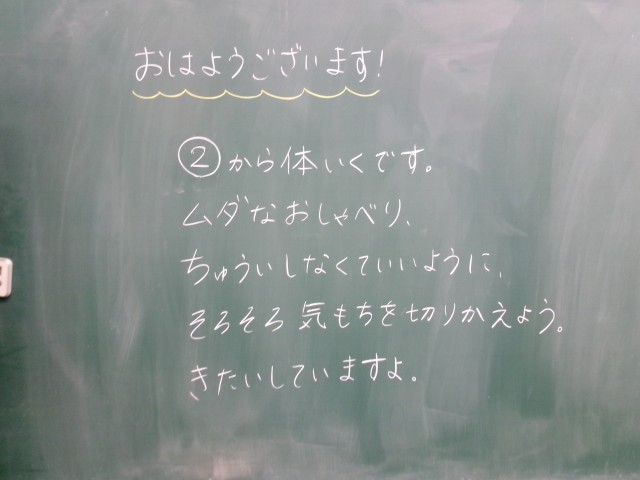 おはようございます!
②から体いくです。
ムダなおしゃべり、
ちゅういしなくていいように、
そろそろ気もちを切りかえよう。
きたいしていますよ。